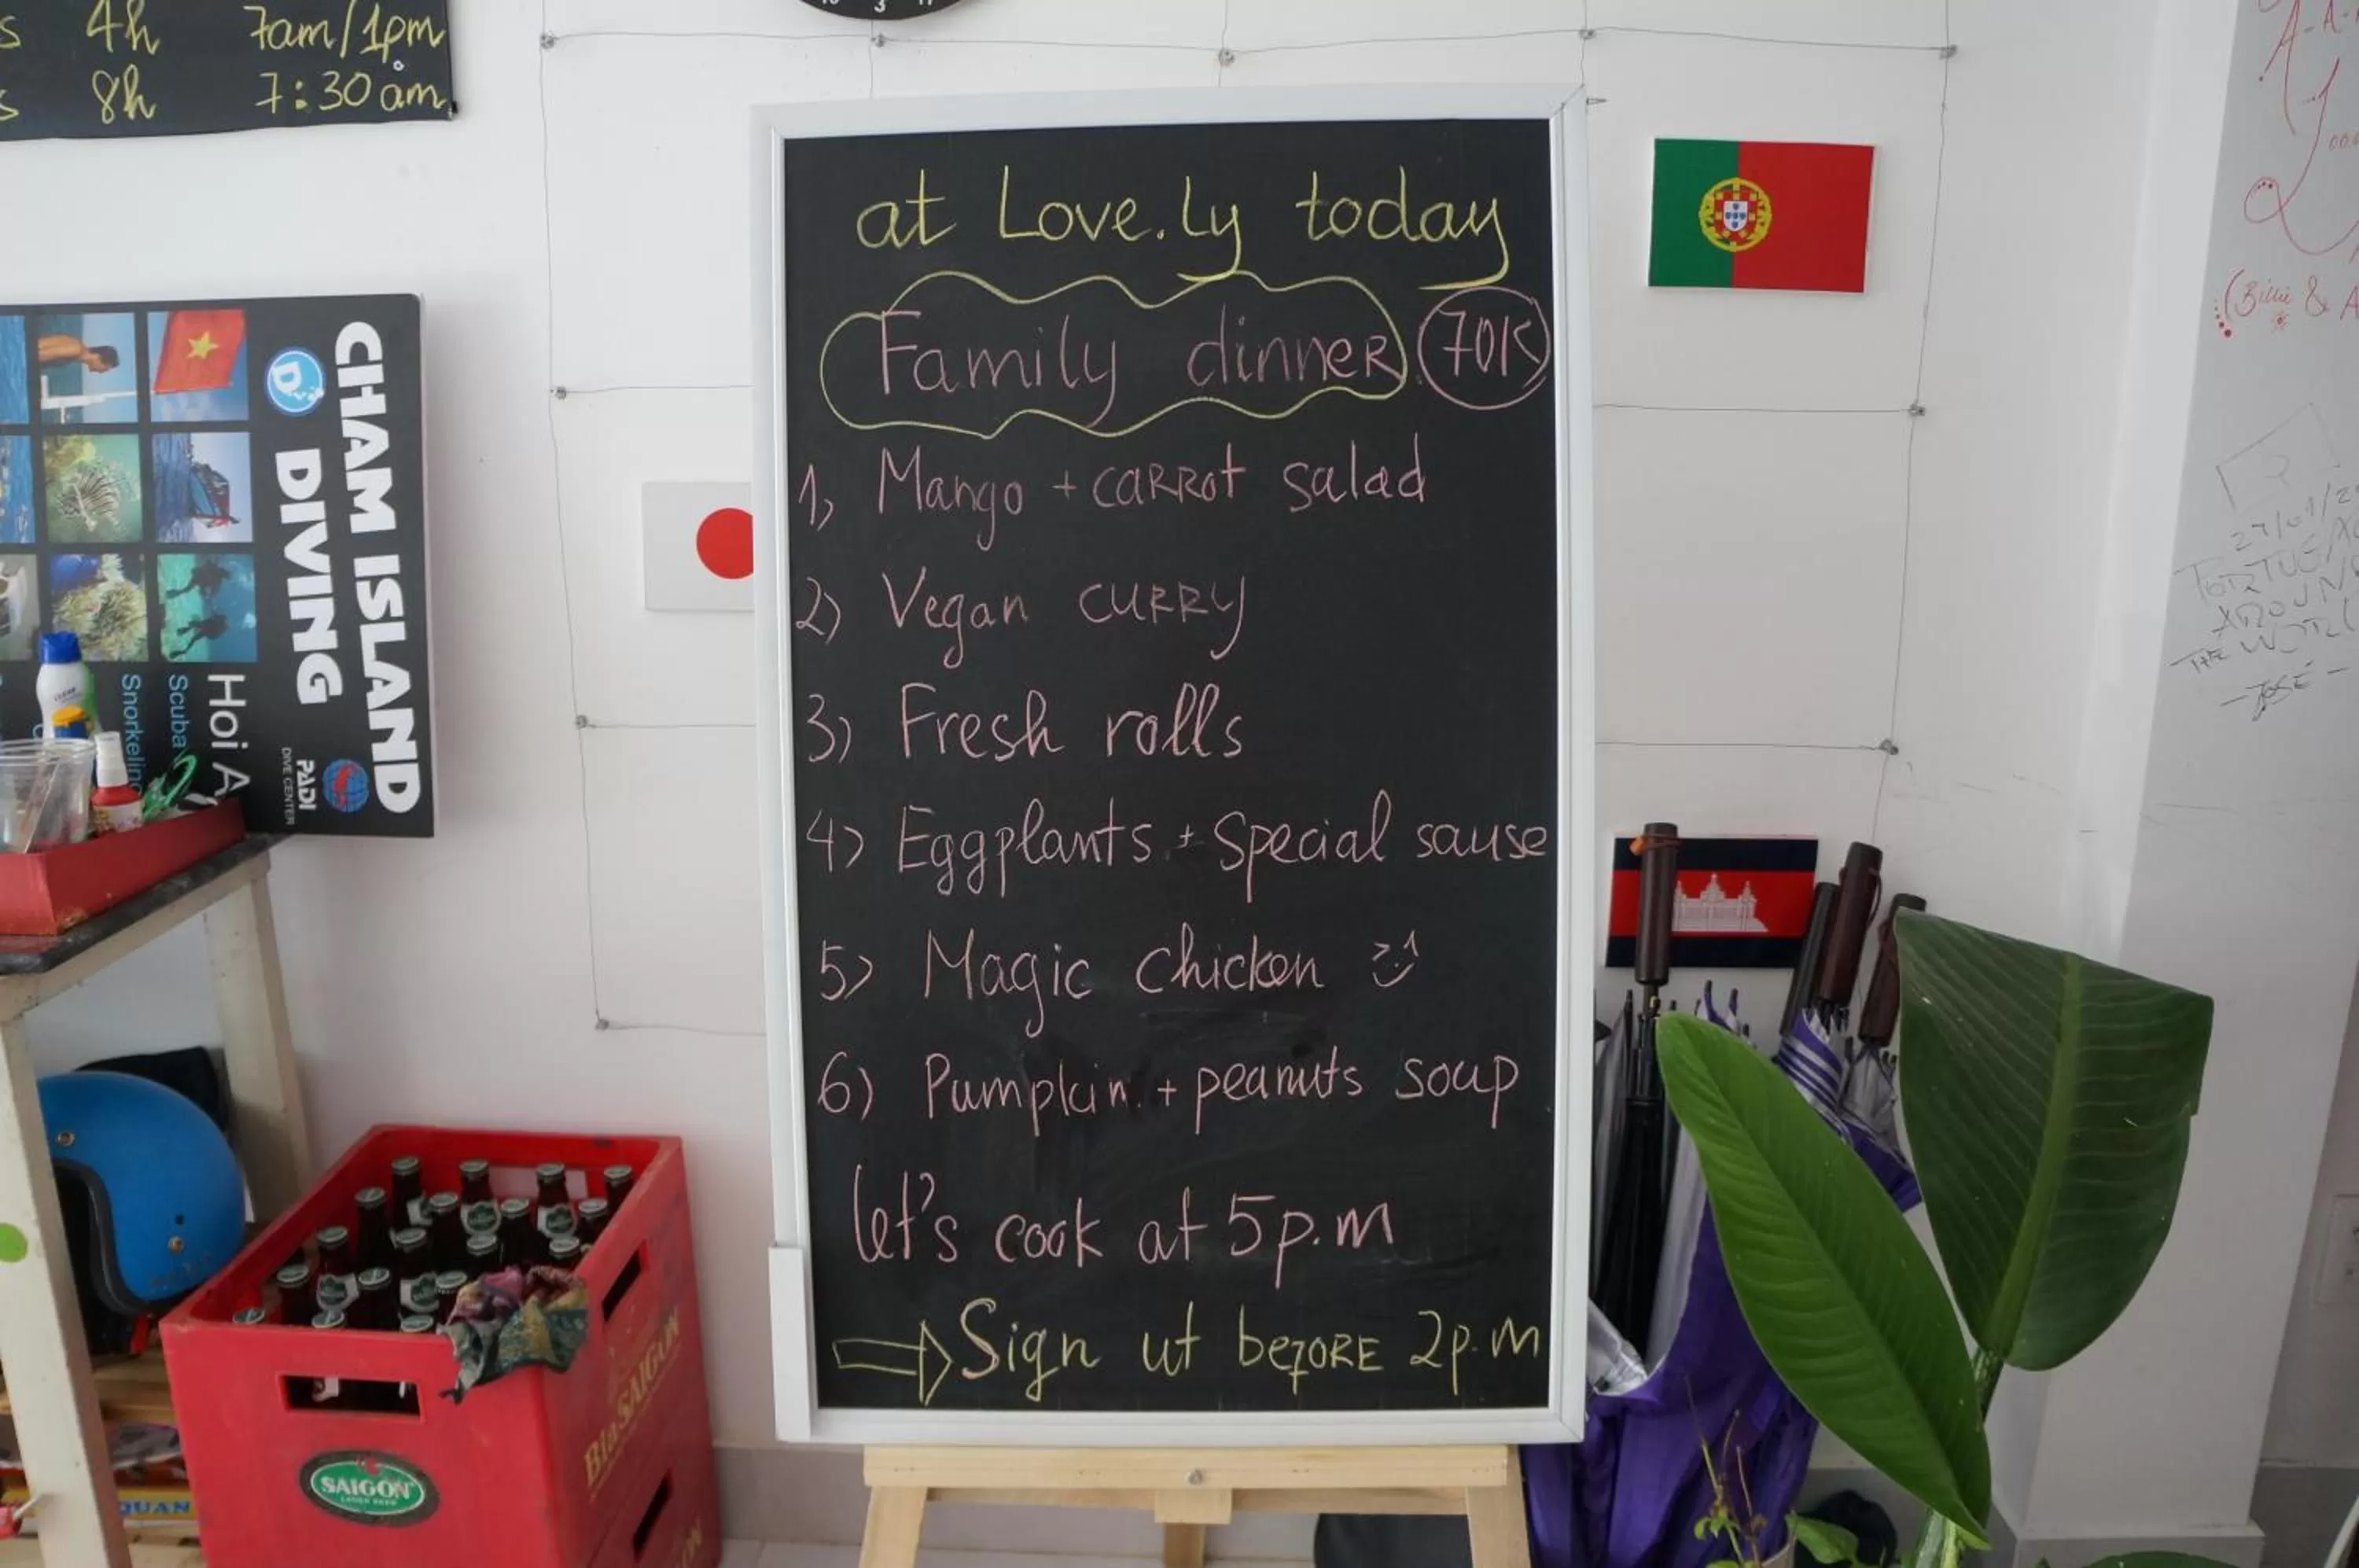 4h 7am/1pm
8h 7:30am
CHAM ISLAND
DIVING
D
PADI
DIVE CENTER
Hoi A
Scuba
Snorkeling
at Love.ly today
Family dinner 70K
1, Mango + carrot salad
2) Vegan curry
3) Fresh rolls
4) Eggplants + special sause
5) Magic chicken
6) Pumpkin + peanuts soup
let's cook at 5p.m
Sign ut before 2p.m
(Billie & A
THE WORL
- JOSÉ -
SAIGON
LAGER BEER
BIA SAIGON
QUAN